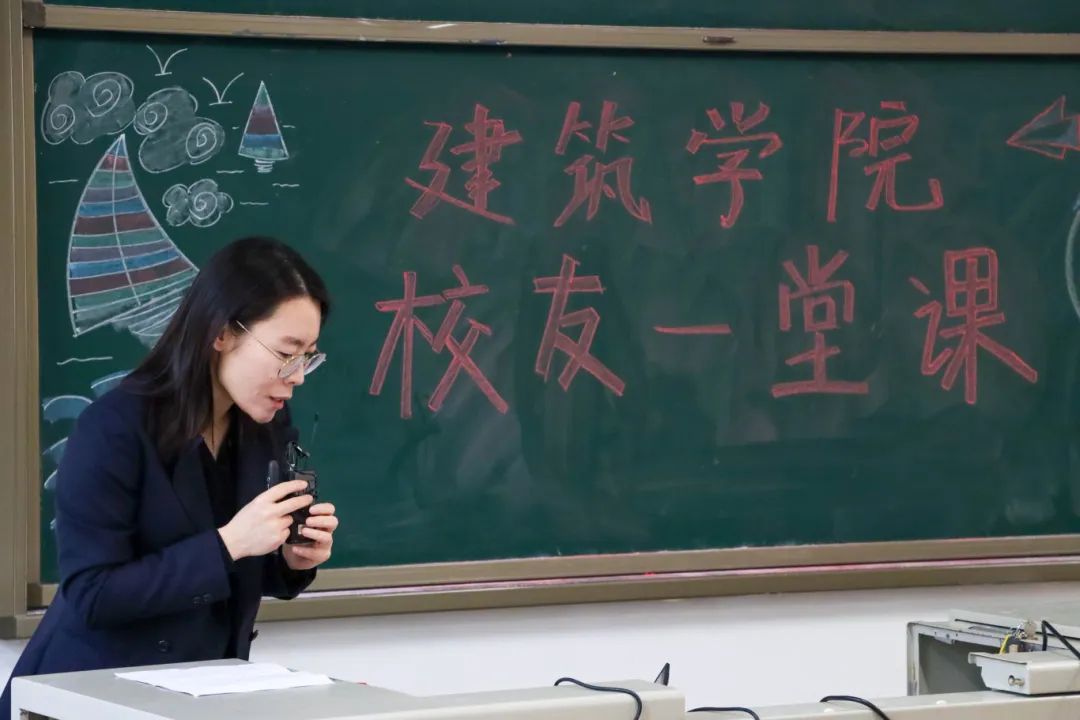 建筑学院
校友一堂课